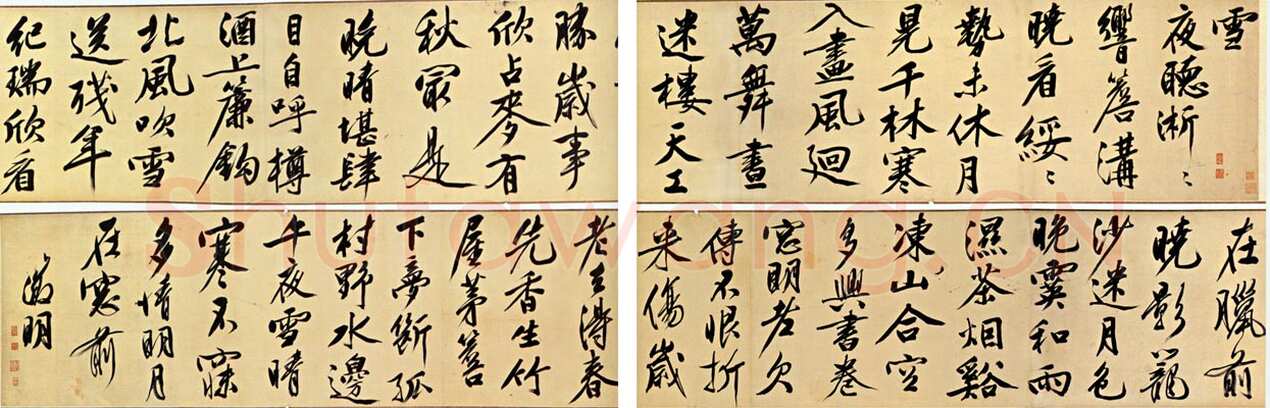 雪
夜聽淅〻
響簷溝
曉看綏〻
勢未休月
晃千林寒
入盡風迴
萬舞晝
迷樓天工
勝歲事
欣占麥有
秋最是
晚晴堪肆
目自呼樽
酒上簾鉤
北風吹雪
送殘年
紀瑞欣看
在臘前
曉影籠
沙迷月色
晚霙和雨
濕茶烟谿
凍山合空
多興書卷
窓明老欠
傳不恨折
來傷歲
老去得春
先香生竹
屋茅簷
下夢斷孤
村野水邊
午夜雪晴
寒不寐
多情明月
在窓前
徵明
Shufawang.CN